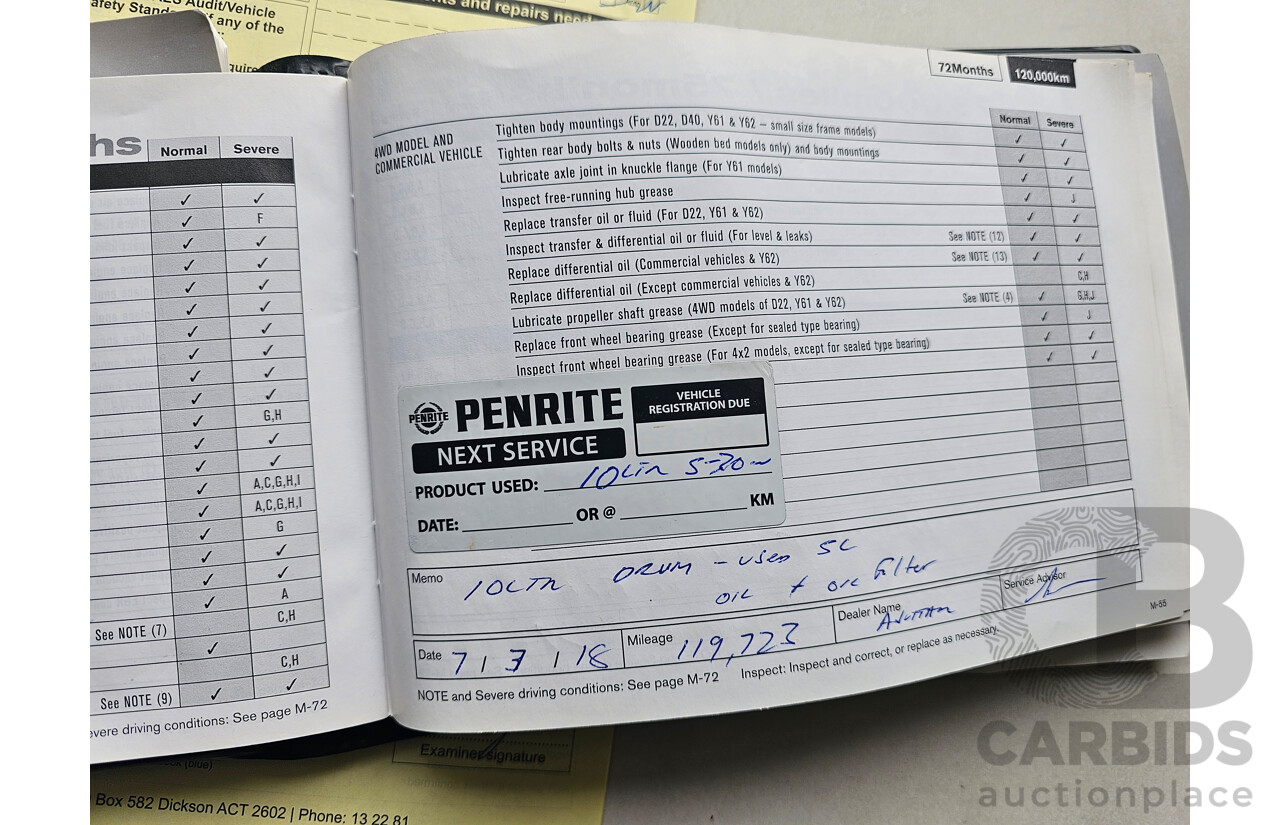 Audit/Vehicle
afety Stand
any of the
nts and repairs nee
quire
hs
Normal Severe
F
G,H
A,C,G,H,I
A,C,G,H,I
G
A
See NOTE (7) C,H
C,H
See NOTE (9)
evere driving conditions: See page M-72
72Months 120,000km
4WD MODEL AND
COMMERCIAL VEHICLE
Normal Severe
Tighten body mountings (For D22, D40, Y61 & Y62 – small size frame models) ✓ ✓
Tighten rear body bolts & nuts (Wooden bed models only) and body mountings ✓ ✓
Lubricate axle joint in knuckle flange (For Y61 models) ✓ ✓
Inspect free-running hub grease ✓ J
Replace transfer oil or fluid (For D22, Y61 & Y62) ✓ ✓
Inspect transfer & differential oil or fluid (For level & leaks) See NOTE (12) ✓ ✓
Replace differential oil (Commercial vehicles & Y62) See NOTE (13) ✓ ✓
Replace differential oil (Except commercial vehicles & Y62) C,H
Lubricate propeller shaft grease (4WD models of D22, Y61 & Y62) See NOTE (4) ✓ G,H,J
Replace front wheel bearing grease (Except for sealed type bearing) ✓ J
Inspect front wheel bearing grease (For 4x2 models, except for sealed type bearing) ✓ ✓
PENRITE
PENRITE
VEHICLE
REGISTRATION DUE
NEXT SERVICE
PRODUCT USED: 10LTR 5-30
DATE: OR @ KM
Memo
10LTR DRUM - USED 5L
OIL + OIL Filter
Date 7/3/18
Mileage 119,723
Dealer Name
Service Advisor
M-55
NOTE and Severe driving conditions: See page M-72 Inspect: Inspect and correct, or replace as necessary.
Examiner signature
(blue)
Box 582 Dickson ACT 2602 | Phone: 13 22 81
CB
CARBIDS
auctionplace